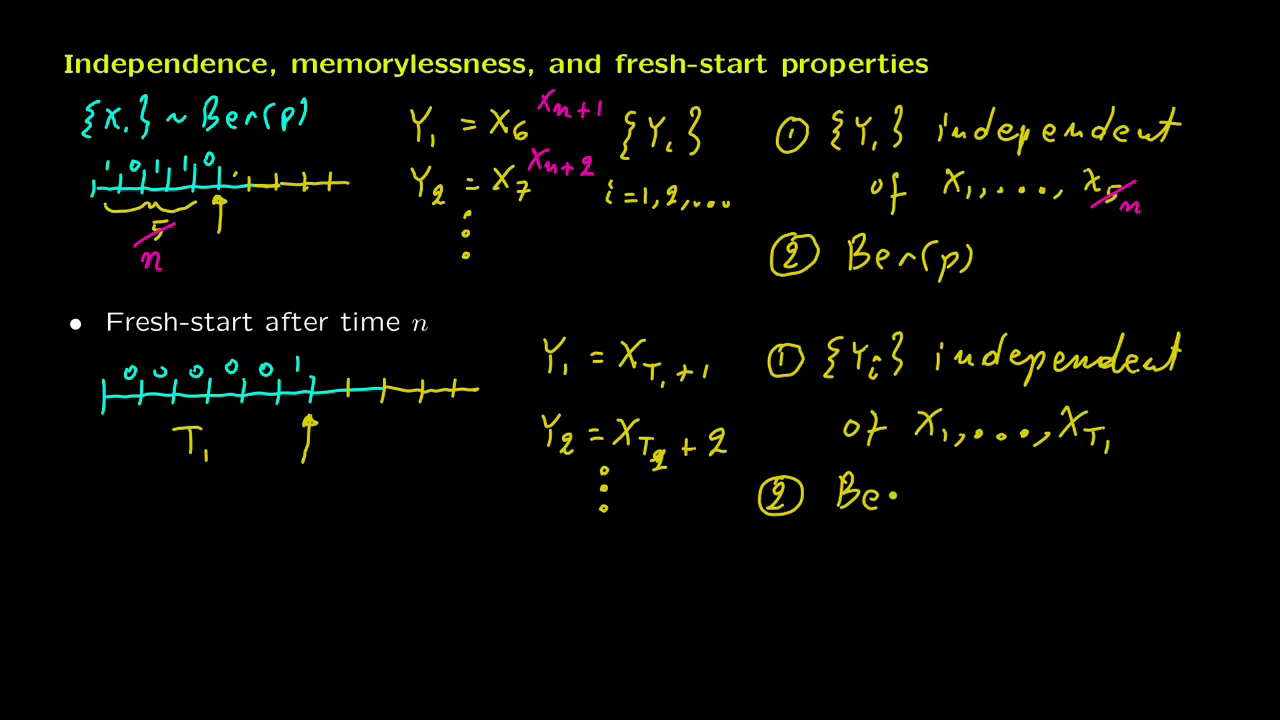 Independence, memorylessness, and fresh-start properties
{X_i} ~ Ber(p)
1 0 1 1 0
5 n
Y_1 = X_6 X_{n+1}
Y_2 = X_7 X_{n+2}
{Y_i}
i = 1, 2, ...
① {Y_i} independent
of X_1, ..., X_5 n
② Ber(p)
• Fresh-start after time n
0 0 0 0 0 1
T_1
Y_1 = X_{T_1 + 1}
Y_2 = X_{T_2 + 2}
① {Y_i} independent
of X_1, ..., X_{T_1}
② Be